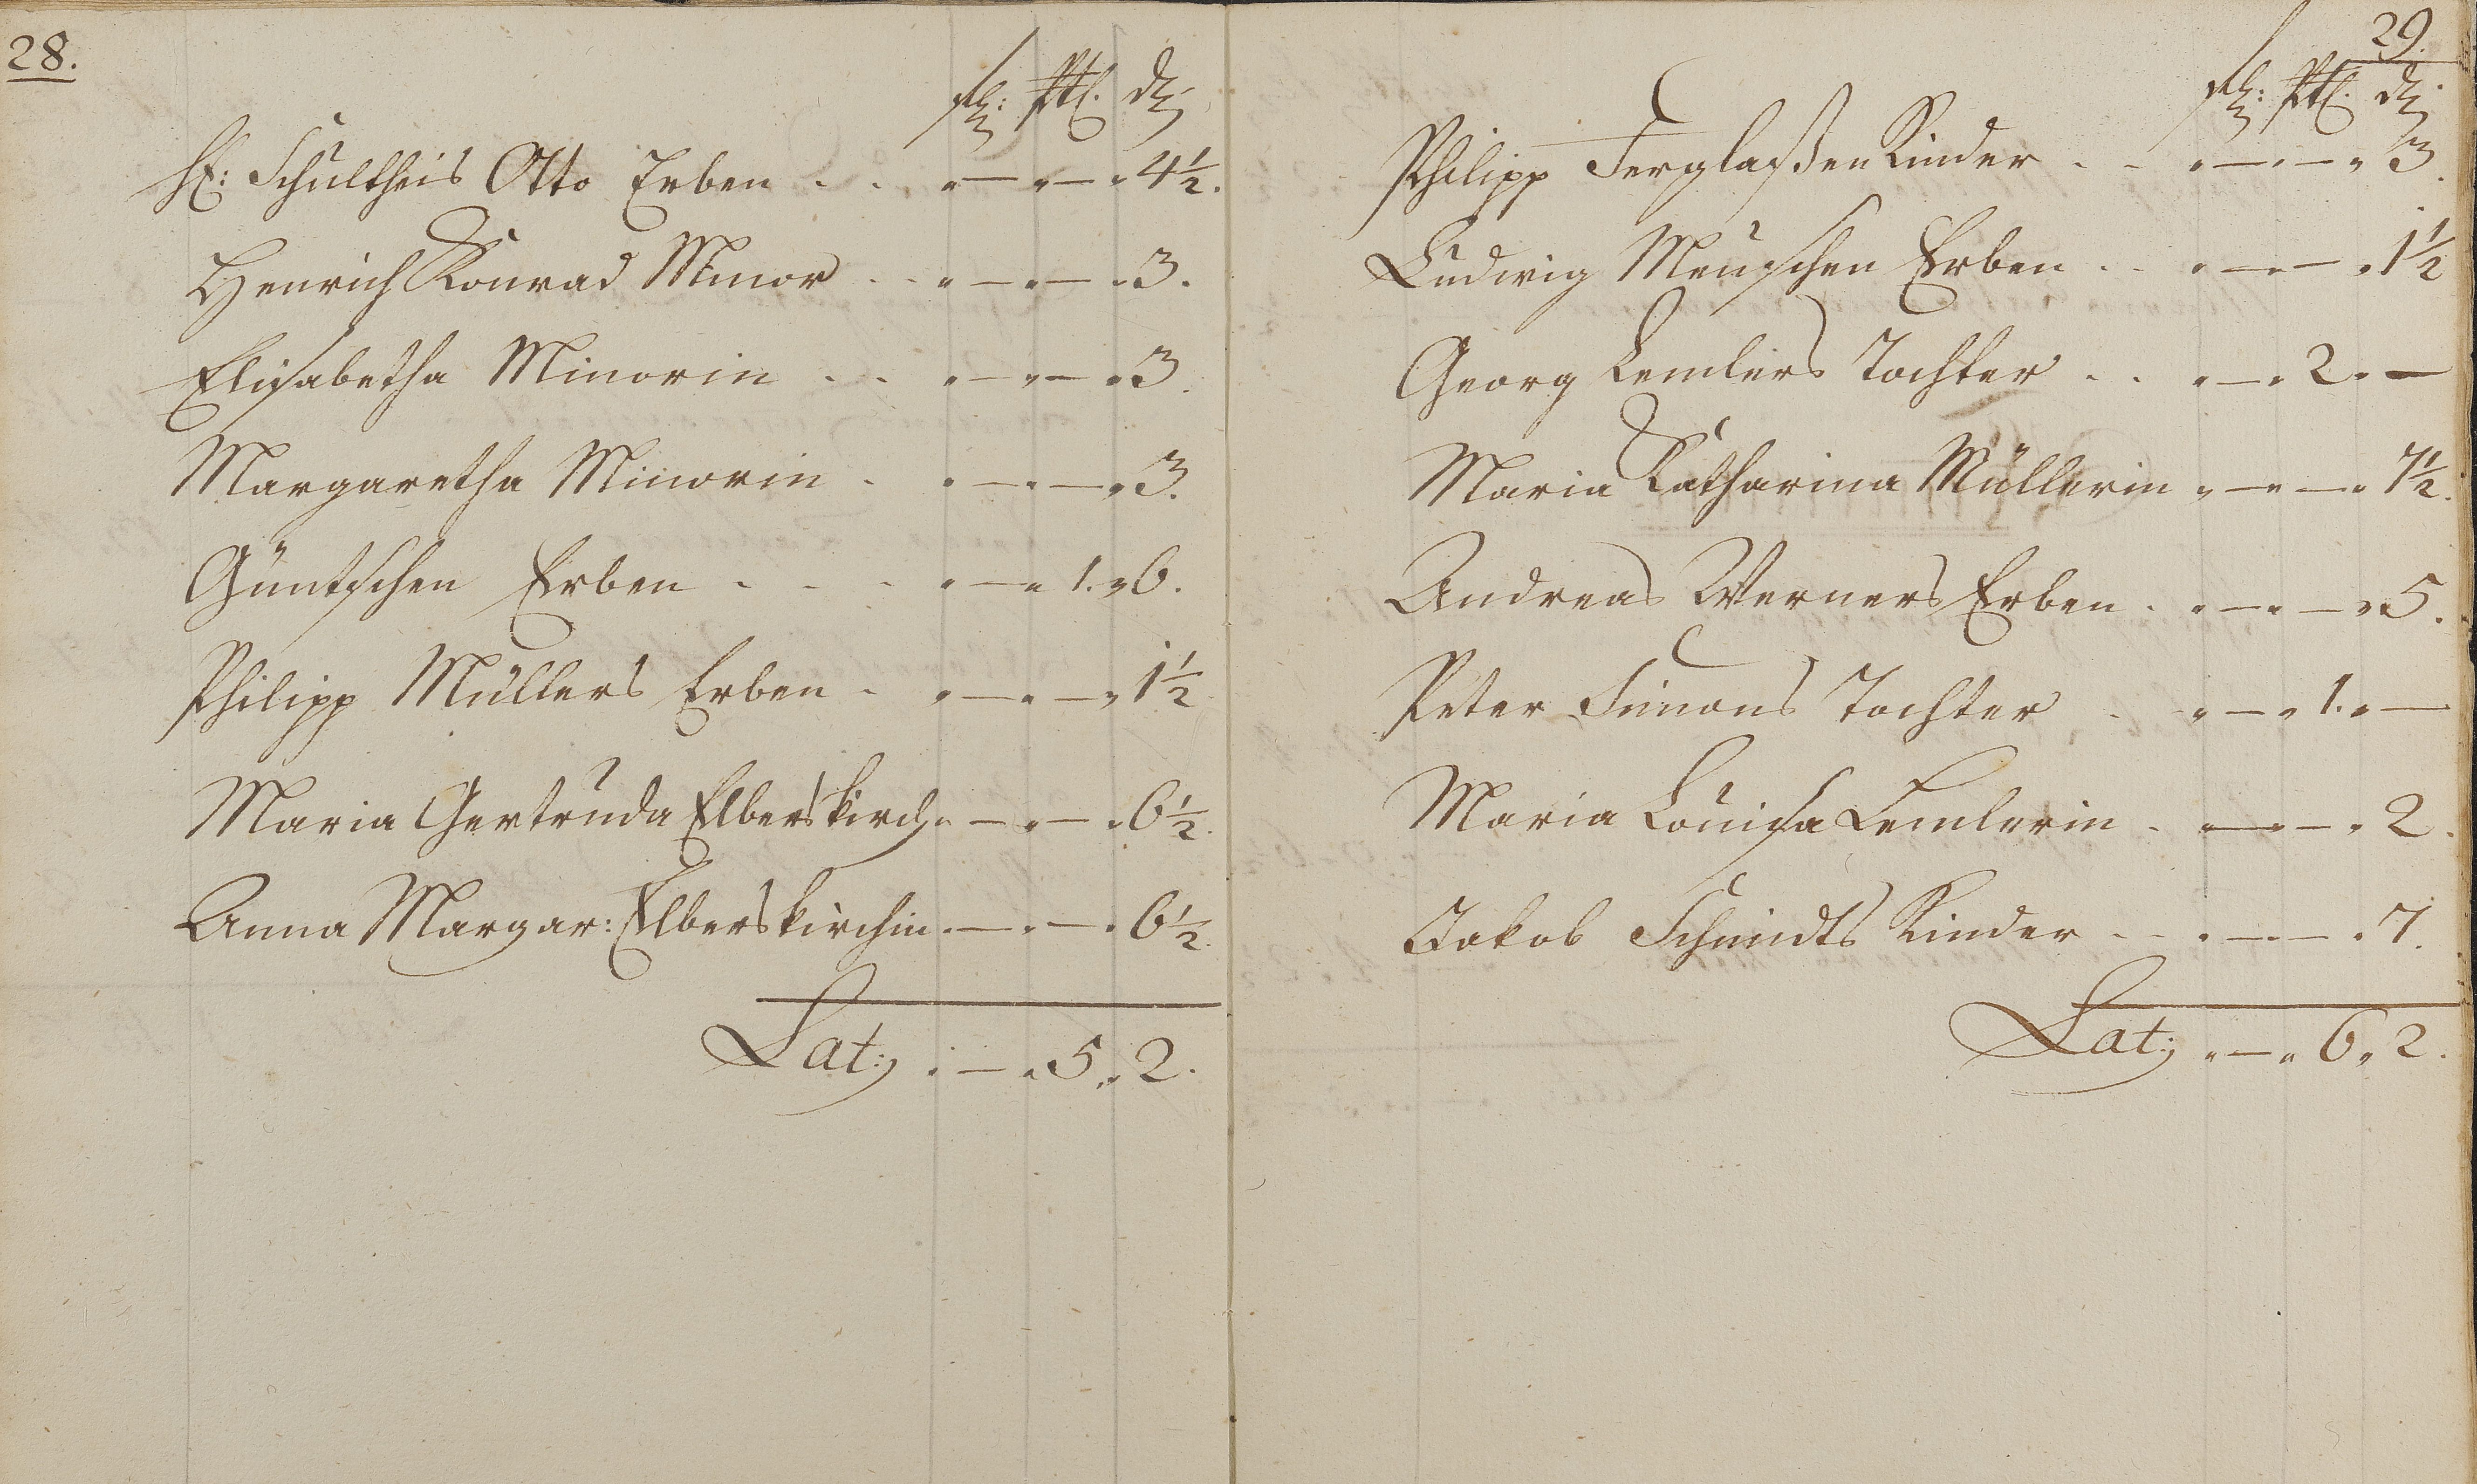 28.
fl: ß. d.
H: Schultheis Otto Erben . . „ — „ — „ 4½.
Henrich Konrad Minor . . „ — „ — „ 3.
Elisabetha Minorin . . „ — „ — „ 3.
Margaretha Minorin . „ — „ — „ 3.
Güntschen Erben . . . „ — „ 1. „ 6.
Philipp Müllers Erben . „ — „ — „ 1½
Maria Gertruda Elberskirch „ — „ — „ 6½.
Anna Margar: Elberskirchin „ — „ — „ 6½.
Lat: „ — „ 5 „ 2.
29.
Philipp Ferglaßen Kinder . . „ — „ — „ 3.
Ludwig Meuschen Erben . . „ — „ — „ 1½
Georg Lemlers Tochter . . „ — „ 2 „ —
Maria Katharina Müllerin „ — „ — „ 7½.
Andreas Werners Erben . „ — „ — „ 5.
Peter Simons Tochter . „ — „ 1. „ —
Maria Louisa Lemlerin . „ — „ — „ 2.
Jakob Schmidts Kinder . . „ — „ — „ 7.
Lat: „ — „ 6 „ 2.